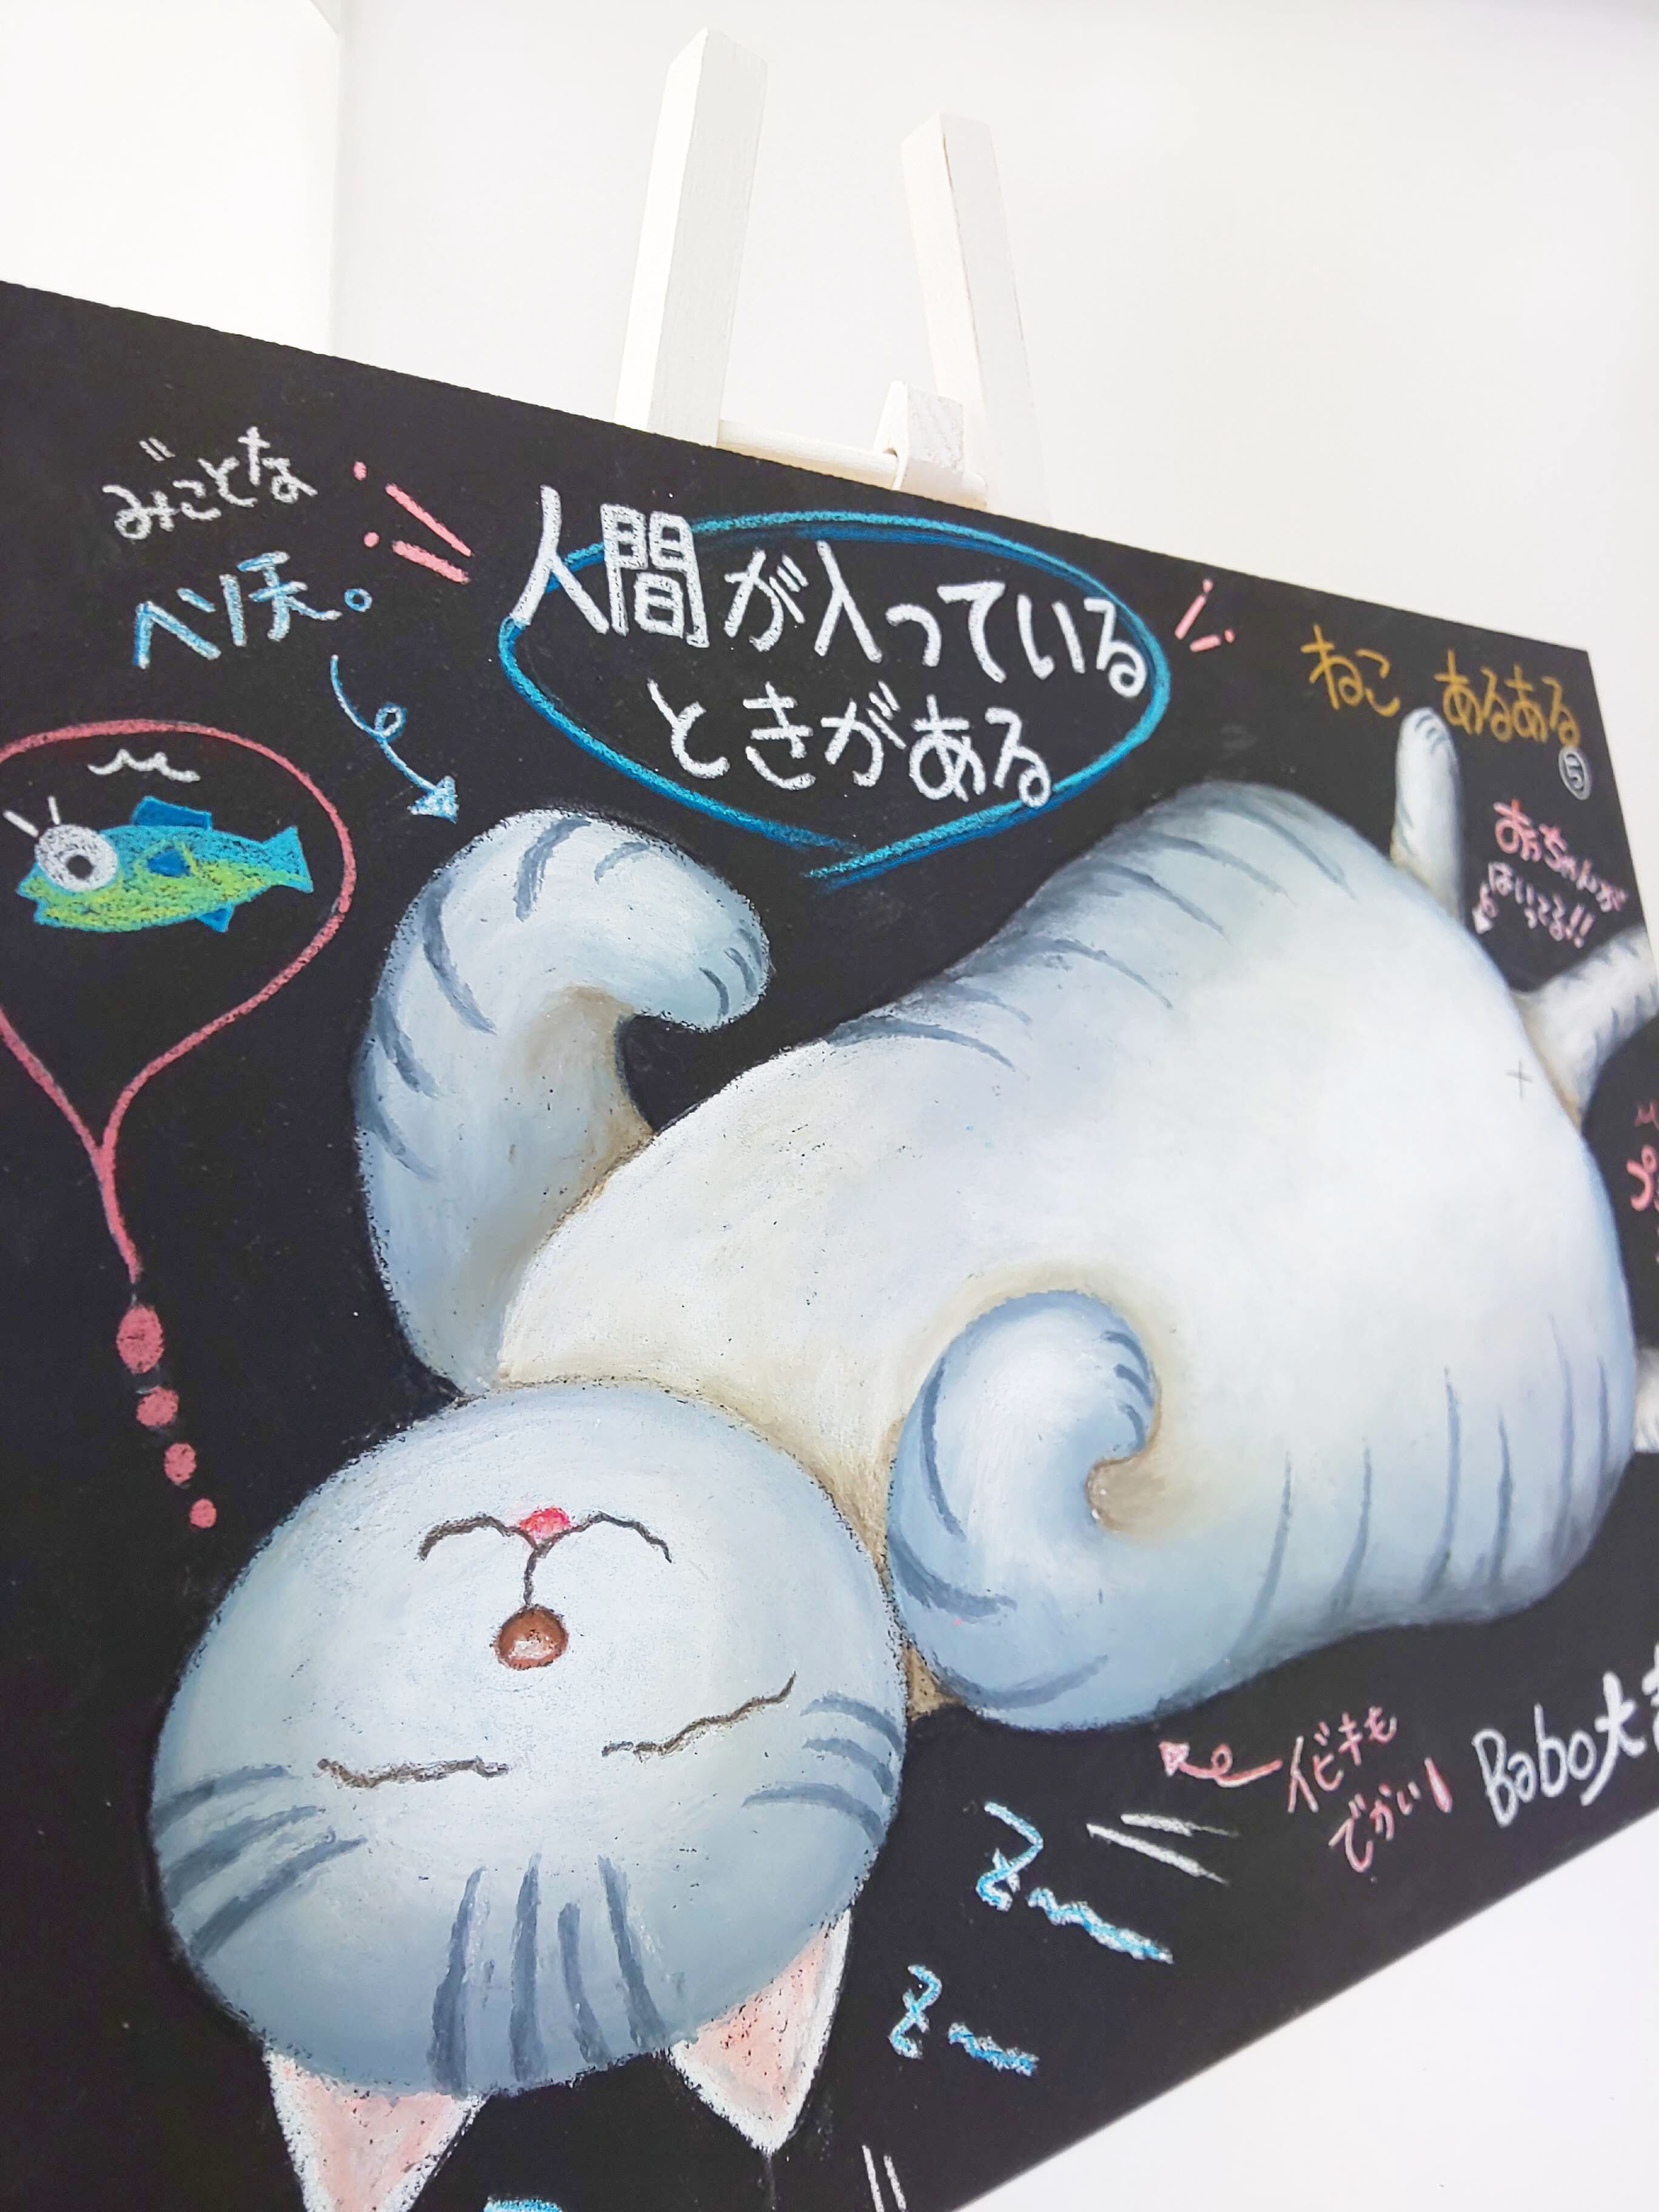 みごとな
ヘソ天。
人間が入っている
ときがある
ねこ あるある
⑤
おっちゃんが
はいってる!!
イビキも
でかい!
Babo大
Z〜
Z〜